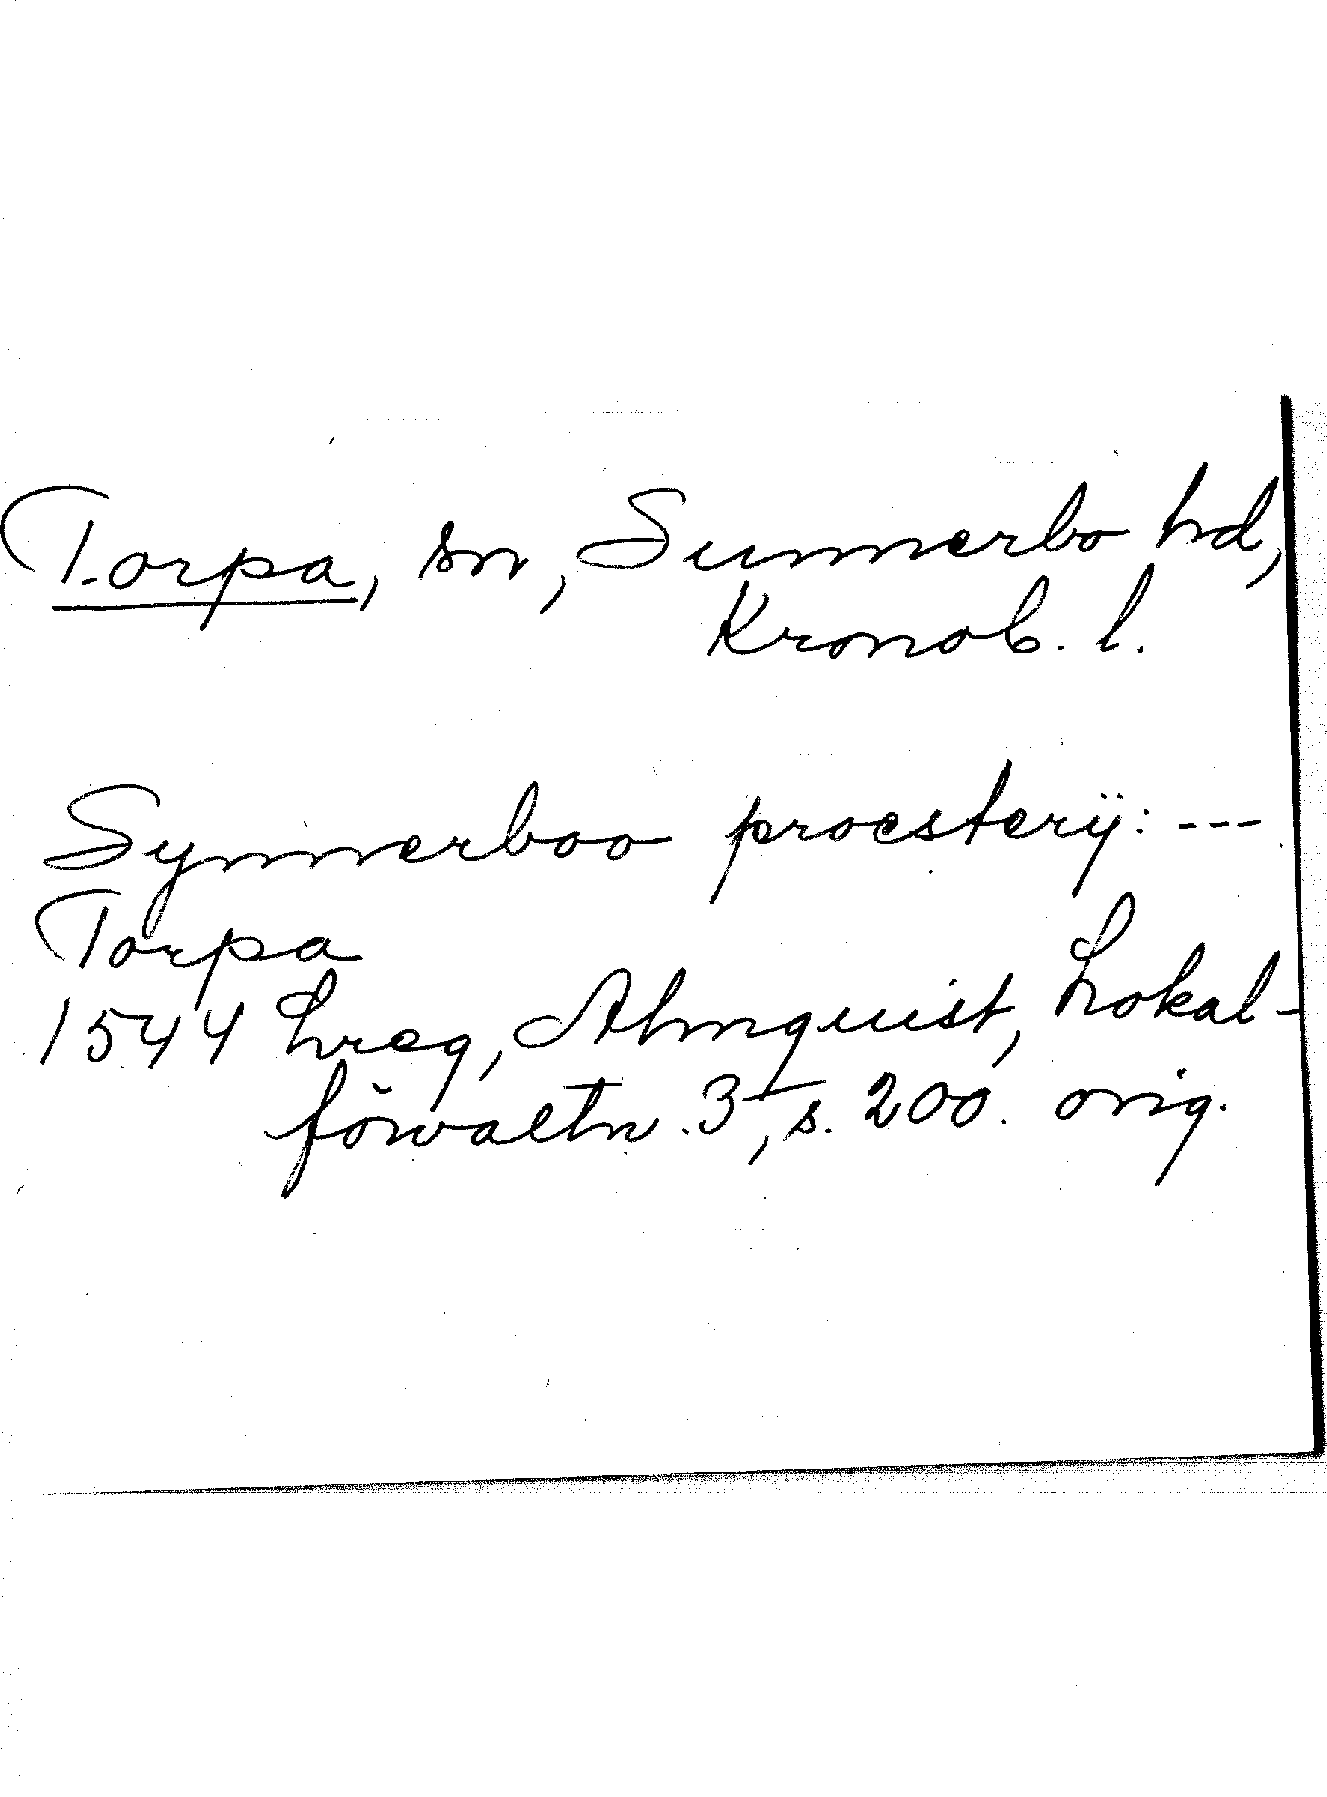 Torpa, sn, Sunnerbo hd,
Kronob. l.
Synnerboo proesterij: ---
Torpa
1544 Lreg, Almquist, Lokal-
förvaltn. 3, s. 200. orig.